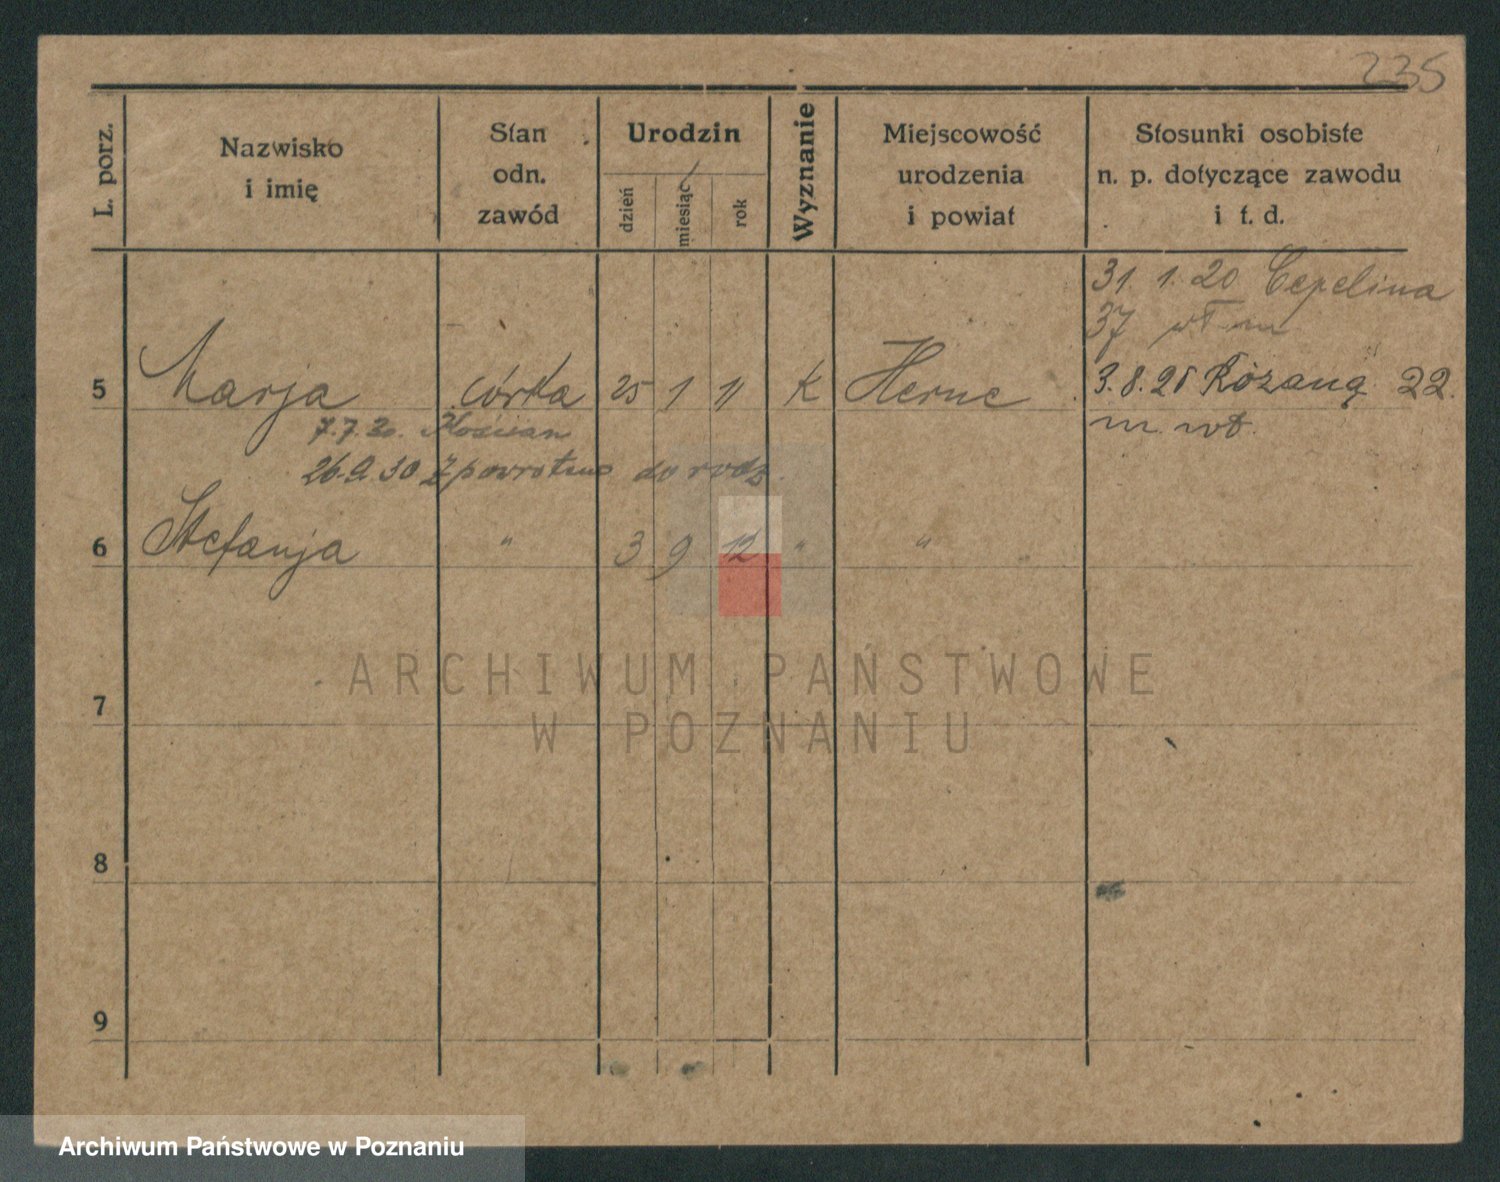 235
L. porz.
Nazwisko
i imię
Stan
odn.
zawód
Urodzin
dzień
miesiąc
rok
Wyznanie
Miejscowość
urodzenia
i powiat
Stosunki osobiste
n. p. dotyczące zawodu
i t. d.
31. 1. 20 Cegelina
37 wł m
5 Marja córka 25 1 11 k Herne 3.8.25 Różana 22.
m. wł.
7.7.30. Kościan
26.9.30 Z powrotem do rodz.
6 Stefanja " 3 9 12 " "
7
8
9
ARCHIWUM PAŃSTWOWE
W POZNANIU
Archiwum Państwowe w Poznaniu